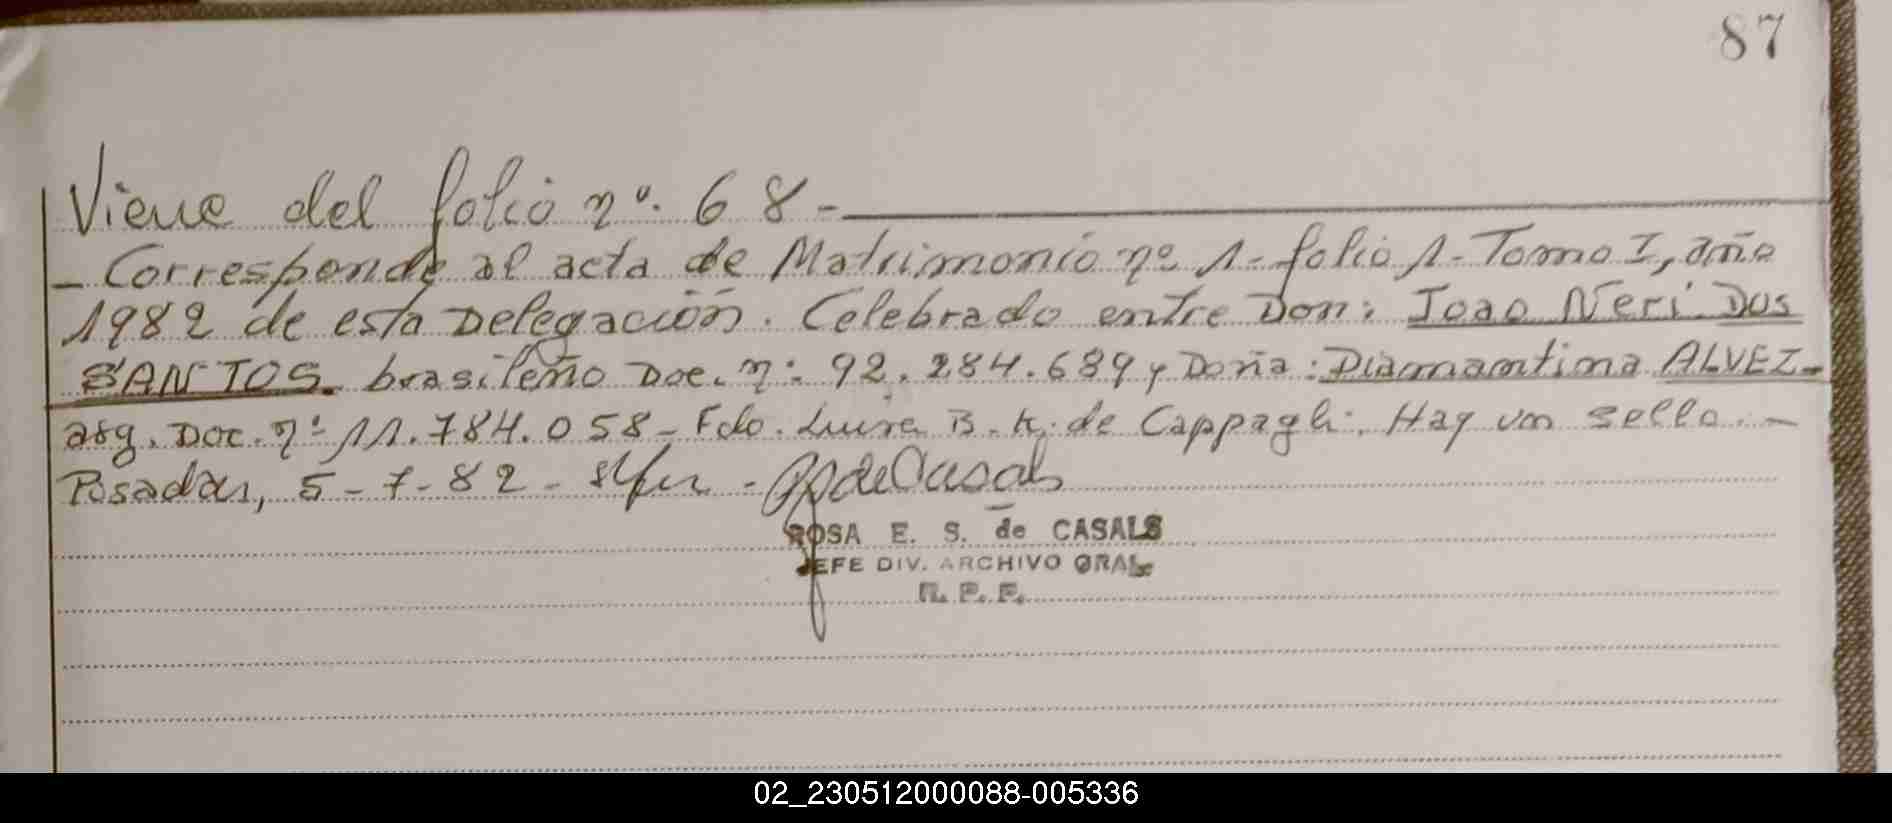 87
Viene del folio nº. 68-
- Corresponde al acta de Matrimonio nº 1- folio 1- Tomo I, año
1982 de esta Delegación. Celebrado entre Don: Joao Neri Dos
SANTOS. brasileño Doc. nº 92.284.689 y Doña: Diamantina ALVEZ-
arg. Doc. nº 11.784.058- Fdo. Luisa B. K. de Cappagli. Hay un sello.-
Posadas, 5-7-82-
ROSA E. S. de CASALS
JEFE DIV. ARCHIVO GRAL.
R. P. P.
02_230512000088-005336